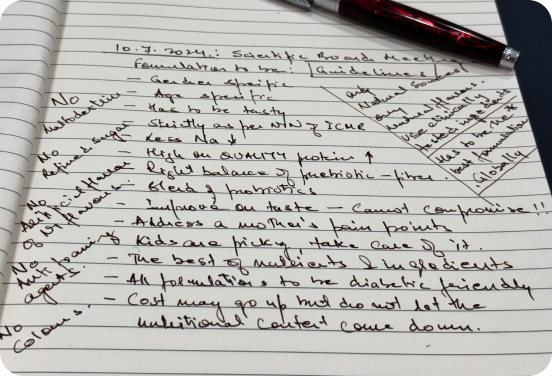 10.7.2024: Scientific Board Meeting
Formulation to be: Guidelines
- Gender specific
- Age specific
- Has to be tasty
- Strictly as per NIN & ICMR
- Less Na ↓
- High on QUALITY protein ↑
- Right balance of prebiotic - fiber
- Blend of probiotics
- Improve on taste - Cannot compromise!!
- Address a mother's pain points
- Kids are picky, take care of it.
- The best of nutrients & ingredients
- All formulations to be diabetic friendly
- Cost may go up but do not let the
nutritional content come down.
No
Maltodextrin
No
Refined sugar
No
Artificial flavour
No
Anti foaming
agents.
No
Colours.
only
Natural Sources
only
Natural flavours.
Use clinically
tested ingredients
Has to be the
best formulation
Globally